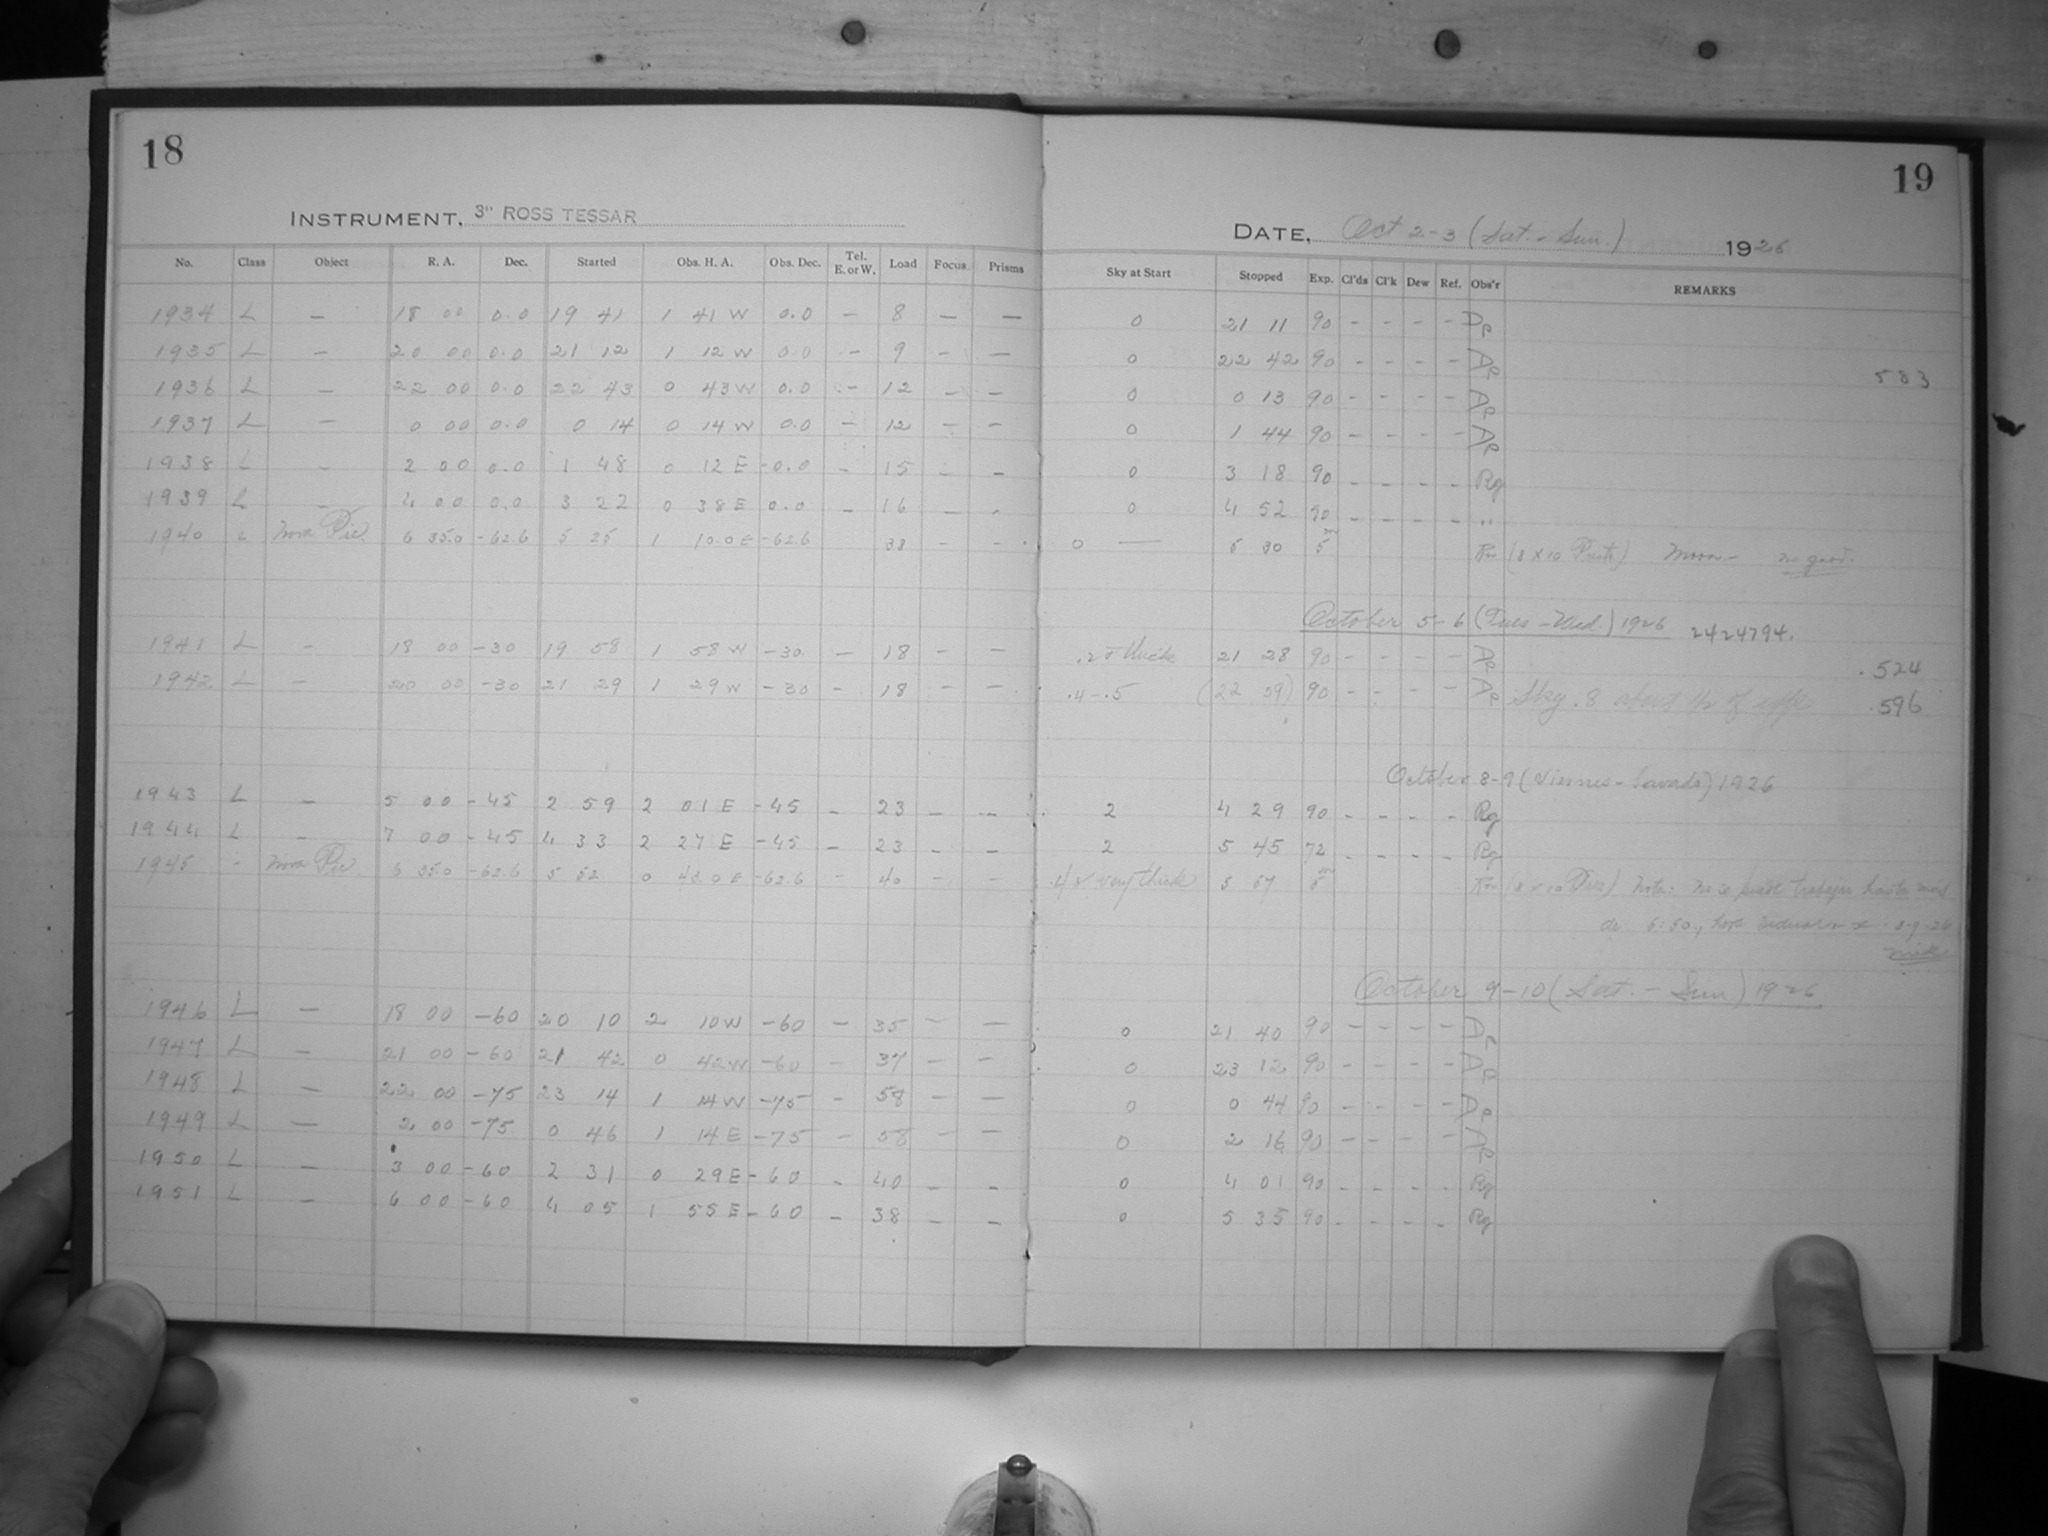 18
19
INSTRUMENT, 3" ROSS TESSAR
DATE, Oct 2-3 (Sat. - Sun.) 1926
No. Class Object R. A. Dec. Started Obs. H. A. Obs. Dec. Tel. E. or W. Load Focus Prisms Sky at Start Stopped Exp. Cl'ds Cl'k Dew Ref. Obs'r REMARKS
1934 L — 18 00 0.0 19 41 1 41 W 0.0 — 8 — — 0 21 11 90 - - - -
1935 L — 20 00 0.0 21 12 1 12 W 0.0 - 9 - — 0 22 42 90 - - - -
583
1936 L — 22 00 0.0 22 43 0 43 W 0.0 - 12 — — 0 0 13 90 - - - -
1937 L — 0 00 0.0 0 14 0 14 W 0.0 - 12 - - 0 1 44 90 - - - -
1938 L - 2 00 0.0 1 48 0 12 E -0.0 - 15 - - 0 3 18 90 - - - - Rg
1939 L - 4 00 0.0 3 22 0 38 E 0.0 - 16 - - 0 4 52 90 - - - - "
1940 L Nova Pic 6 35.0 -62.6 5 25 1 10.0 E -62.6 33 - - 0 — 5 30 5m (8 x 10 Moon - no good.
October 5-6 (Tues - Wed.) 1926 2424794.
1941 L - 18 00 -30 19 58 1 58 W -30 — 18 - — thick 21 28 90 - - - - .524
1942 L — 20 00 -30 21 29 1 29 W -30 - 18 - — .4-.5 (22 59) 90 - - - - Sky .8 about 1/2 of .596
October 8-9 (Viernes - Savado) 1926
1943 L — 5 00 -45 2 59 2 01 E -45 - 23 — - 2 4 29 90 - - - - Rg
1944 L - 7 00 -45 4 33 2 27 E -45 - 23 - - 2 5 45 72 - - - - Rg
1945 - Nova Pic 6 35.0 -62.6 5 52 0 43.0 E -62.6 - 40 - - .4 very thick 5 57 5m (8 x 10 Nota: no se
October 9-10 (Sat. - Sun) 1926
1946 L — 18 00 -60 20 10 2 10 W -60 - 35 - — 0 21 40 90 - - - -
1947 L - 21 00 -60 21 42 0 42 W -60 - 37 - - 0 23 12 90 - - - -
1948 L — 22 00 -75 23 14 1 14 W -75 - 58 - — 0 0 44 90 - - - -
1949 L — 2 00 -75 0 46 1 14 E -75 - 58 - — 0 2 16 90 - - - -
1950 L - 3 00 -60 2 31 0 29 E -60 - 40 - - 0 4 01 90 - - - - Rg
1951 L - 6 00 -60 4 05 1 55 E -60 - 38 - - 0 5 35 90 - - - - Rg